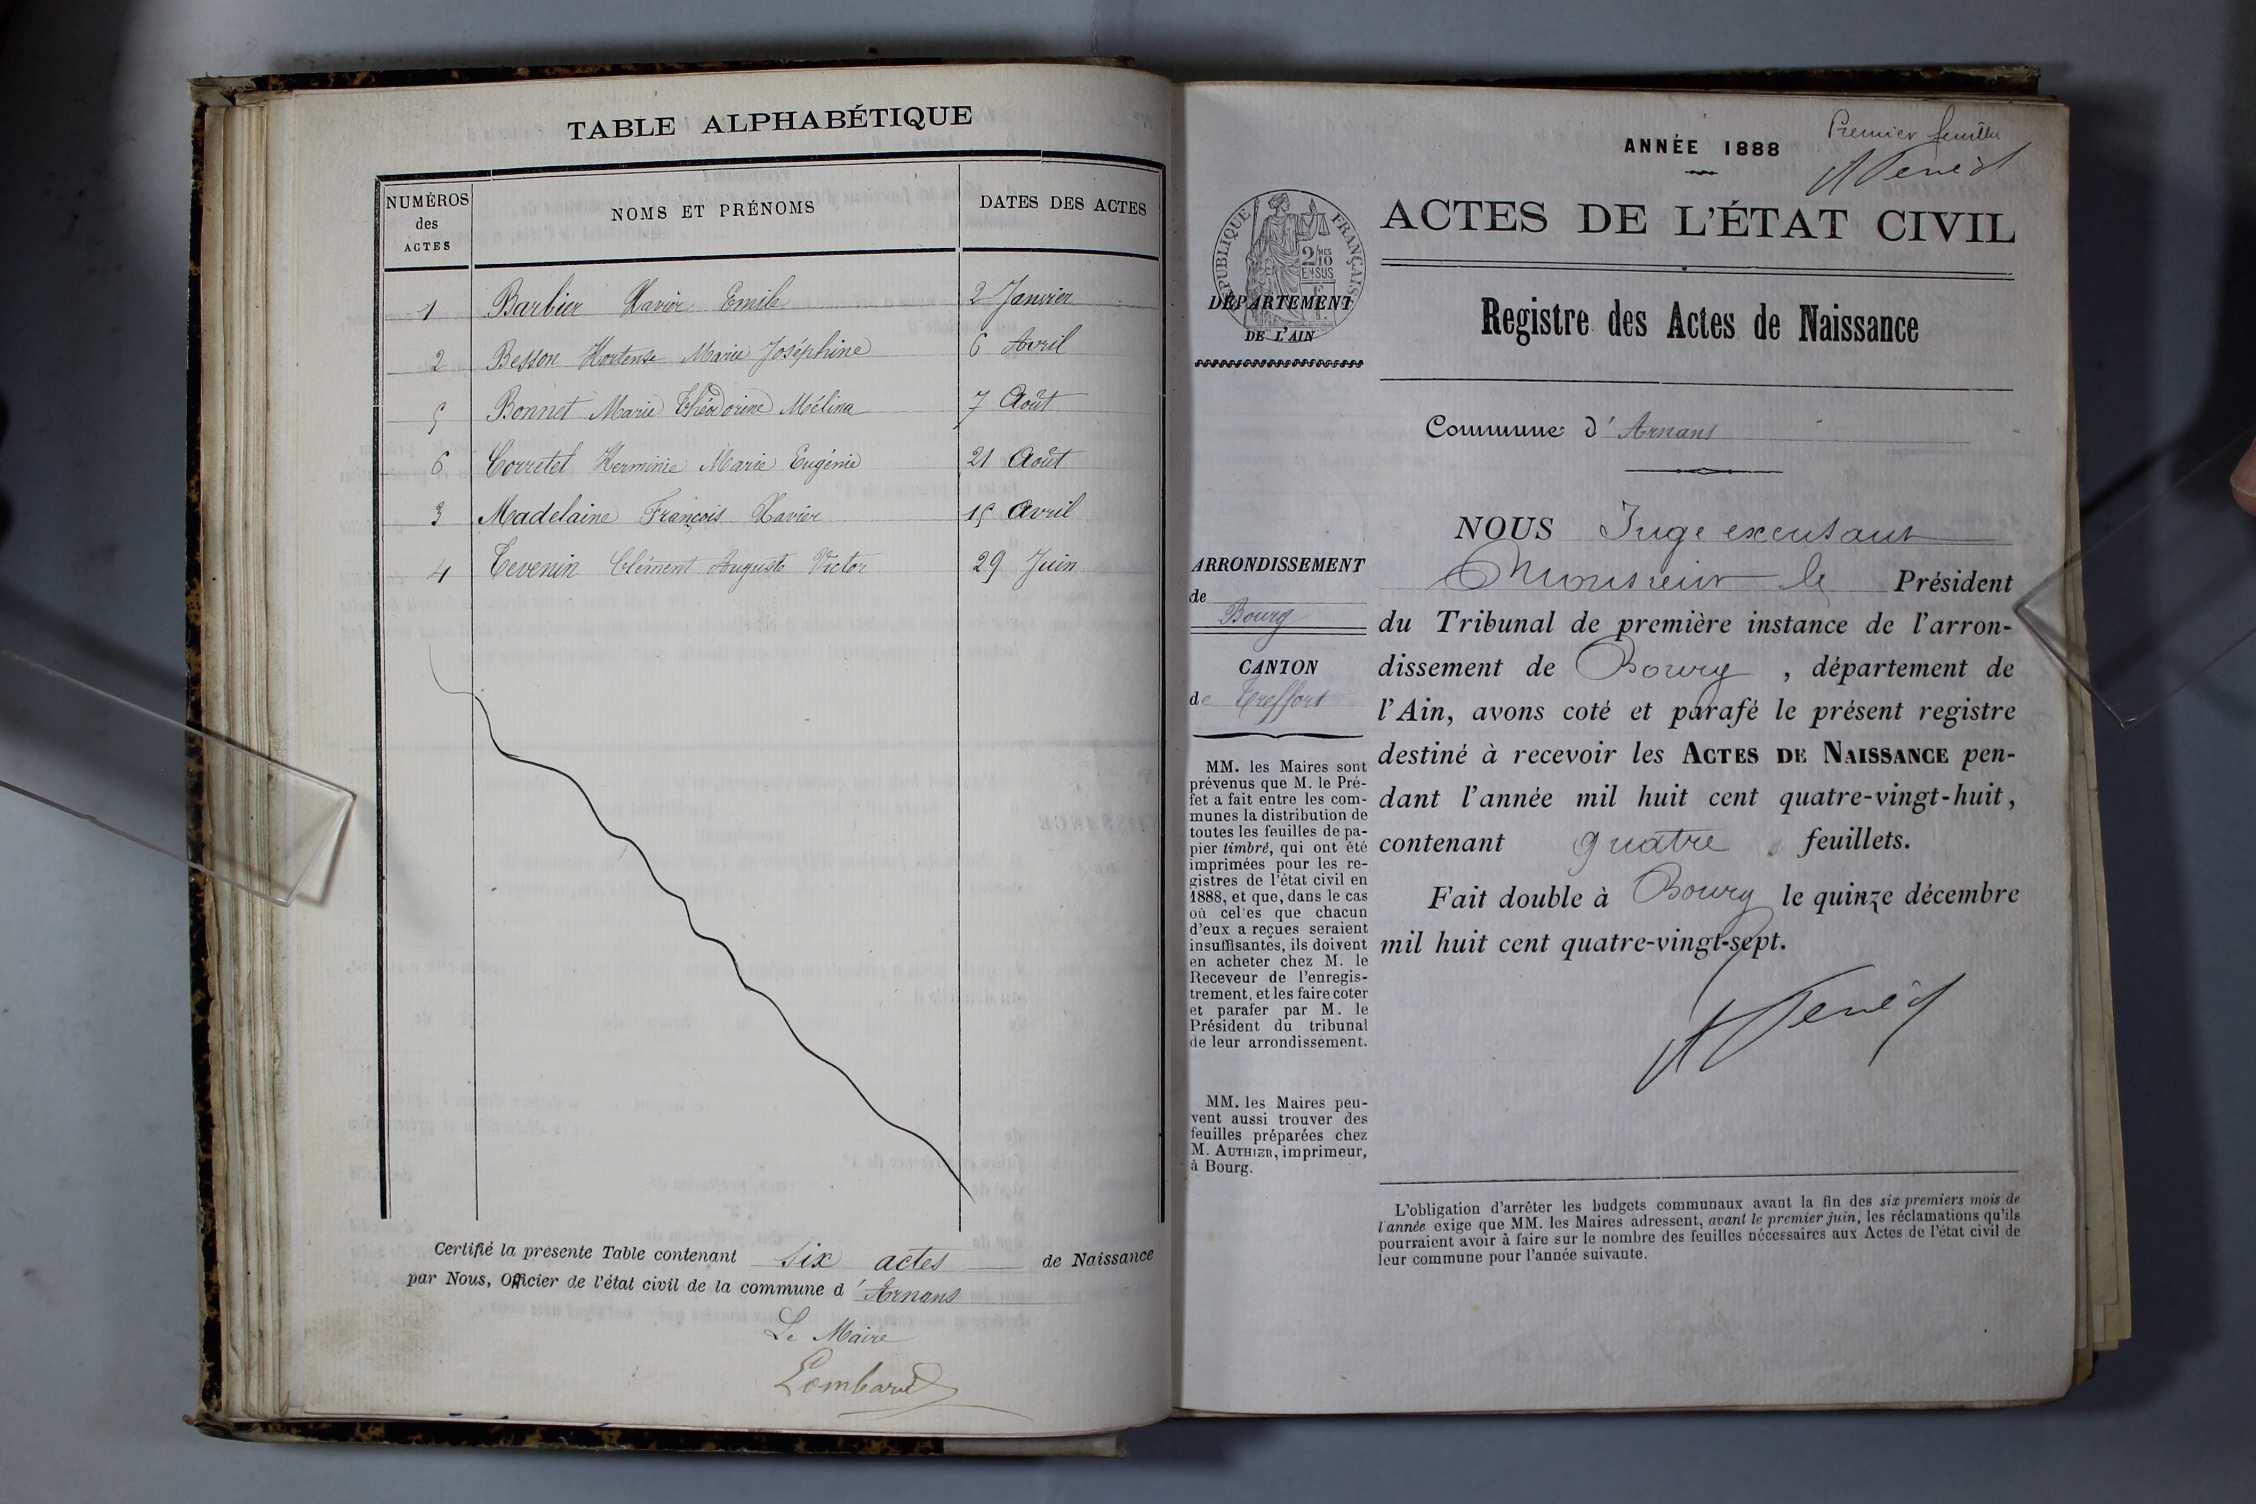 TABLE ALPHABÉTIQUE
NUMÉROS des ACTES NOMS ET PRÉNOMS DATES DES ACTES
1 Barbier Xavier Emile 2 Janvier
2 Besson Hortense Marie Joséphine 6 Avril
5 Bonnet Marie Théodorine Mélina 7 Août
6 Corretel Herminie Marie Eugénie 21 Août
3 Madelaine François Xavier 15 Avril
4 Tevenin Clément Auguste Victor 29 Juin
Certifié la présente Table contenant six actes de Naissance
par Nous, Officier de l'état civil de la commune d'Arnans
Le Maire
Lombard
Premier feuillet
ANNÉE 1888
ACTES DE L'ÉTAT CIVIL
RÉPUBLIQUE FRANÇAISE
2/10
EN SUS
DÉPARTEMENT
DE L'AIN
Registre des Actes de Naissance
Commune d'Arnans
ARRONDISSEMENT
de
Bourg
CANTON
de Treffort
MM. les Maires sont
prévenus que M. le Pré-
fet a fait entre les com-
munes la distribution de
toutes les feuilles de pa-
pier timbré, qui ont été
imprimées pour les re-
gistres de l'état civil en
1888, et que, dans le cas
où celles que chacun
d'eux a reçues seraient
insuffisantes, ils doivent
en acheter chez M. le
Receveur de l'enregis-
trement, et les faire coter
et parafer par M. le
Président du tribunal
de leur arrondissement.
MM. les Maires peu-
vent aussi trouver des
feuilles préparées chez
M. AUTHIER, imprimeur,
à Bourg.
NOUS Juge excusant
Monsieur le Président
du Tribunal de première instance de l'arron-
dissement de Bourg, département de
l'Ain, avons coté et parafé le présent registre
destiné à recevoir les ACTES DE NAISSANCE pen-
dant l'année mil huit cent quatre-vingt-huit,
contenant quatre feuillets.
Fait double à Bourg le quinze décembre
mil huit cent quatre-vingt-sept.
L'obligation d'arrêter les budgets communaux avant la fin des six premiers mois de
l'année exige que MM. les Maires adressent, avant le premier juin, les réclamations qu'ils
pourraient avoir à faire sur le nombre des feuilles nécessaires aux Actes de l'état civil de
leur commune pour l'année suivante.